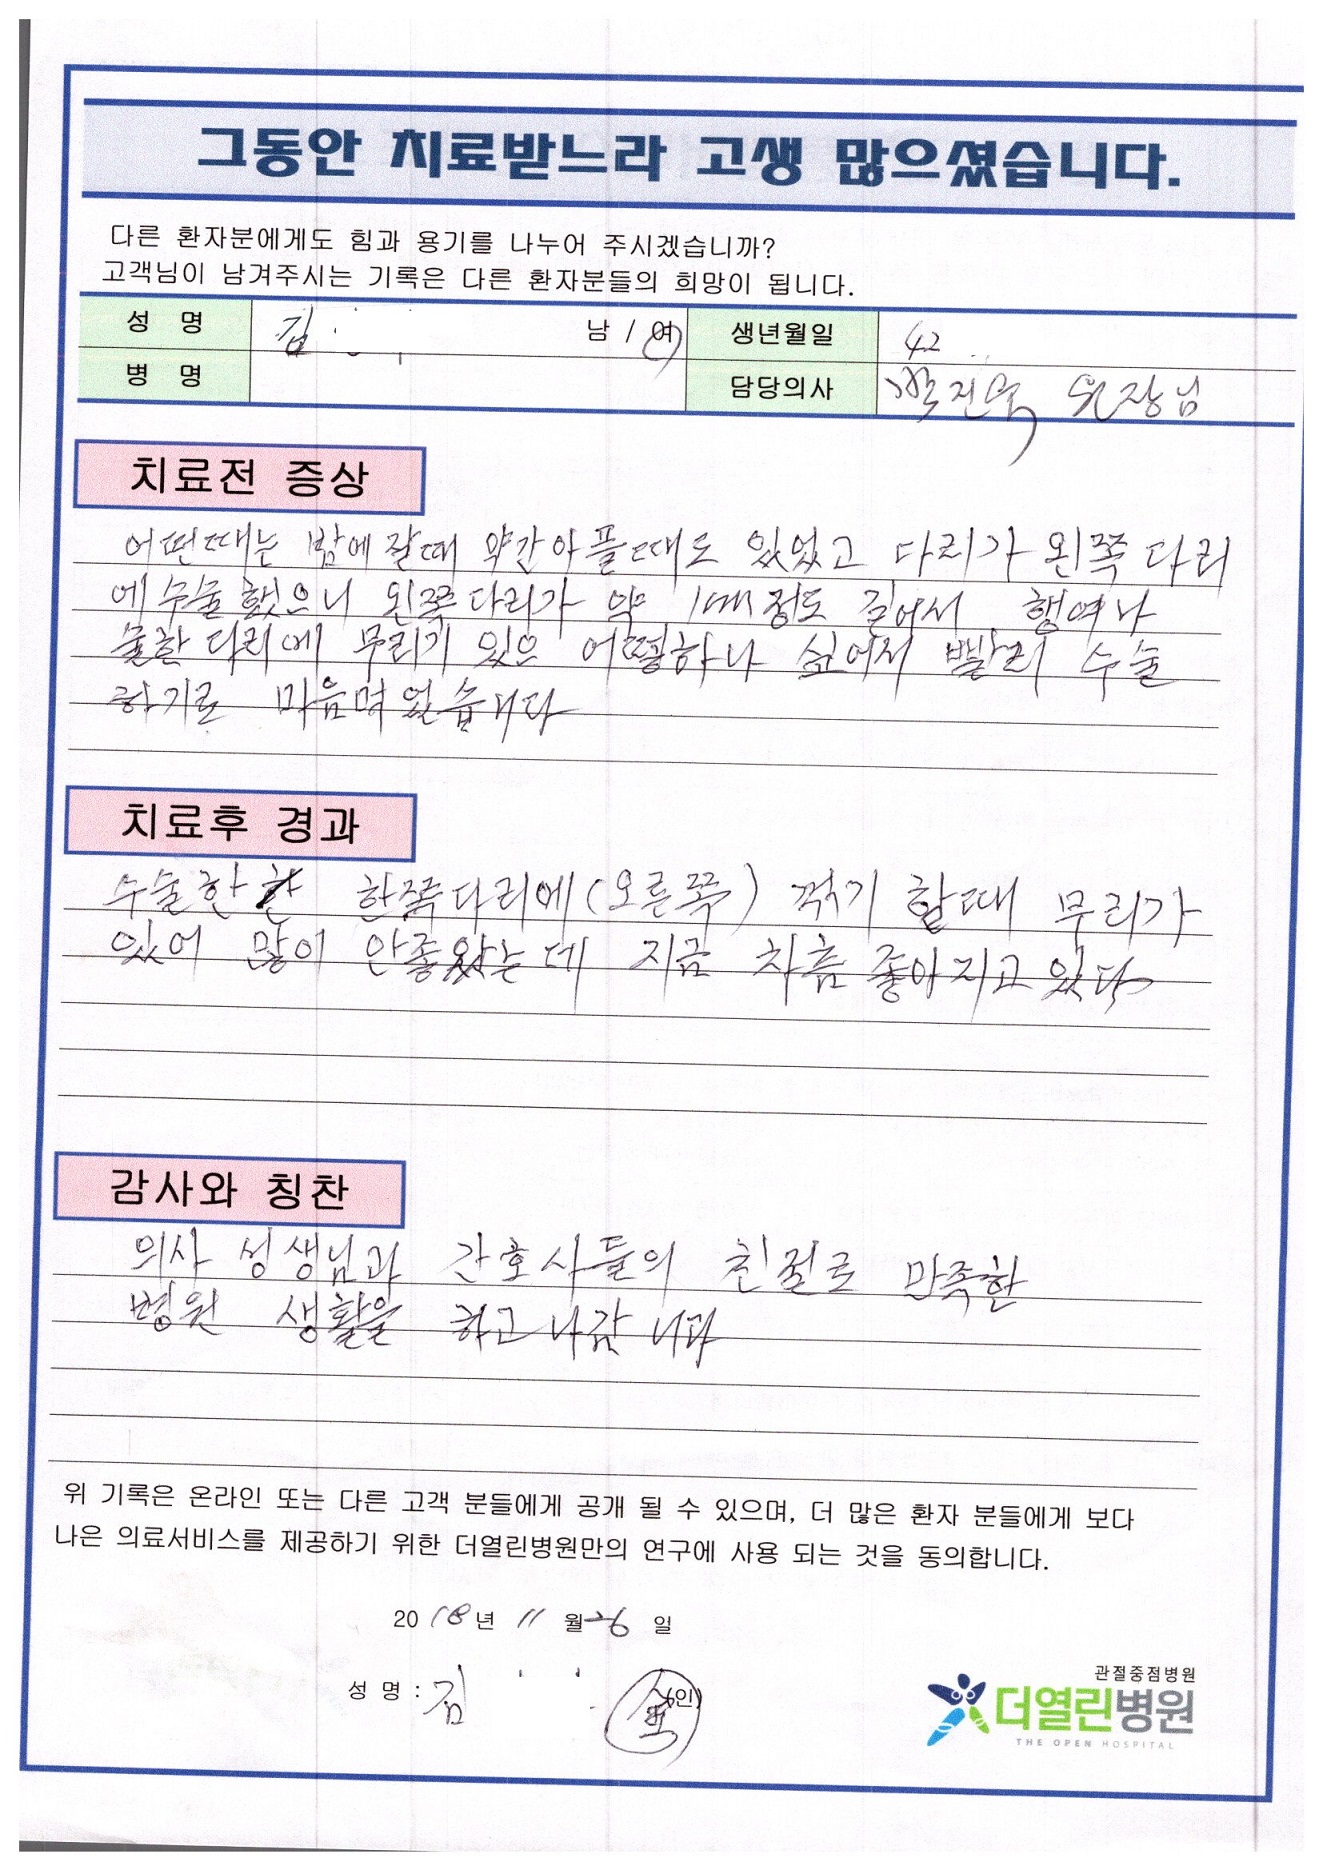 그동안 치료받느라 고생 많으셨습니다.
다른 환자분에게도 힘과 용기를 나누어 주시겠습니까?
고객님이 남겨주시는 기록은 다른 환자분들의 희망이 됩니다.
성 명 김 남 / 여 생년월일 42
병 명 담당의사 원장님
치료전 증상
어떤때는 밤에 잘때 약간아플때도 있었고 다리가 왼쪽 다리
에 수술했으니 왼쪽다리가 약 1cm정도 길어서 행여나
다리에 무리가 있으 어떻하나 싶어서 빨리 수술
하기로 마음먹었습니다
치료후 경과
수술한 한쪽다리에(오른쪽) 꺽기 할때 무리가
있어 많이 안좋왔는데 지금 차츰 좋아지고 있다
감사와 칭찬
의사 성생님과 간호사들의 친절로 만족한
병원 생활을 하고 나갑니다
위 기록은 온라인 또는 다른 고객 분들에게 공개 될 수 있으며, 더 많은 환자 분들에게 보다
나은 의료서비스를 제공하기 위한 더열린병원만의 연구에 사용 되는 것을 동의합니다.
2018년 11월 26일
성 명 : 김 (인)
관절중점병원
더열린병원
THE OPEN HOSPITAL